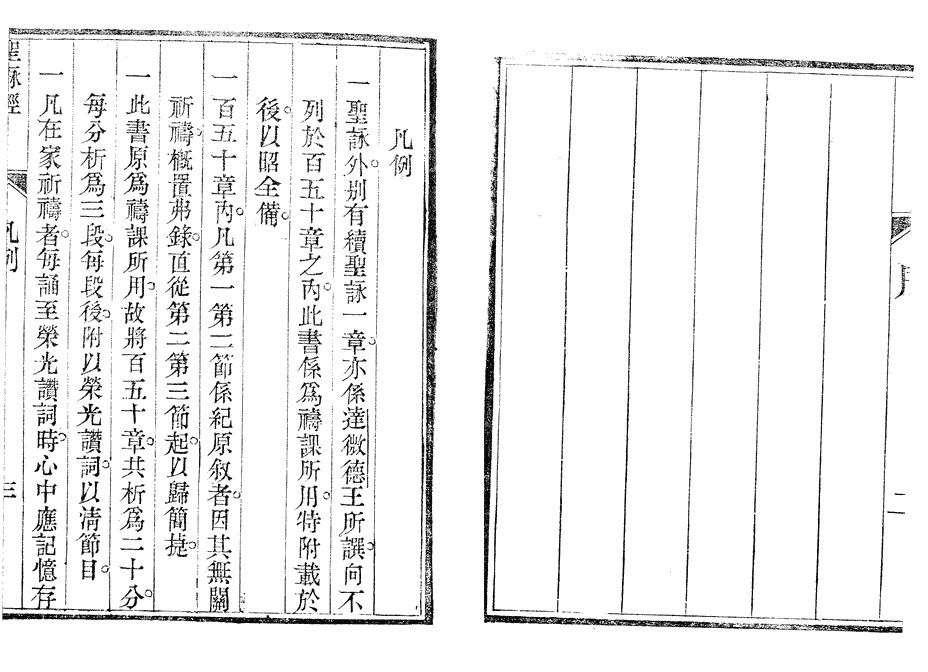 二
凡例
一聖詠外。別有續聖詠一章。亦係達微德王所譔。向不
列於百五十章之內。此書係爲禱課所用。特附載於
後。以昭全備。
一百五十章內。凡第一第二節係紀原叙者。因其無關
祈禱。槪置弗錄。直從第二第三節起。以歸簡捷。
一此書原爲禱課所用。故將百五十章。共析爲二十分。
每分析爲三段。每段後。附以榮光讚詞。以淸節目。
一凡在家祈禱者。每誦至榮光讚詞時。心中應記憶存
聖詠經
凡例
三